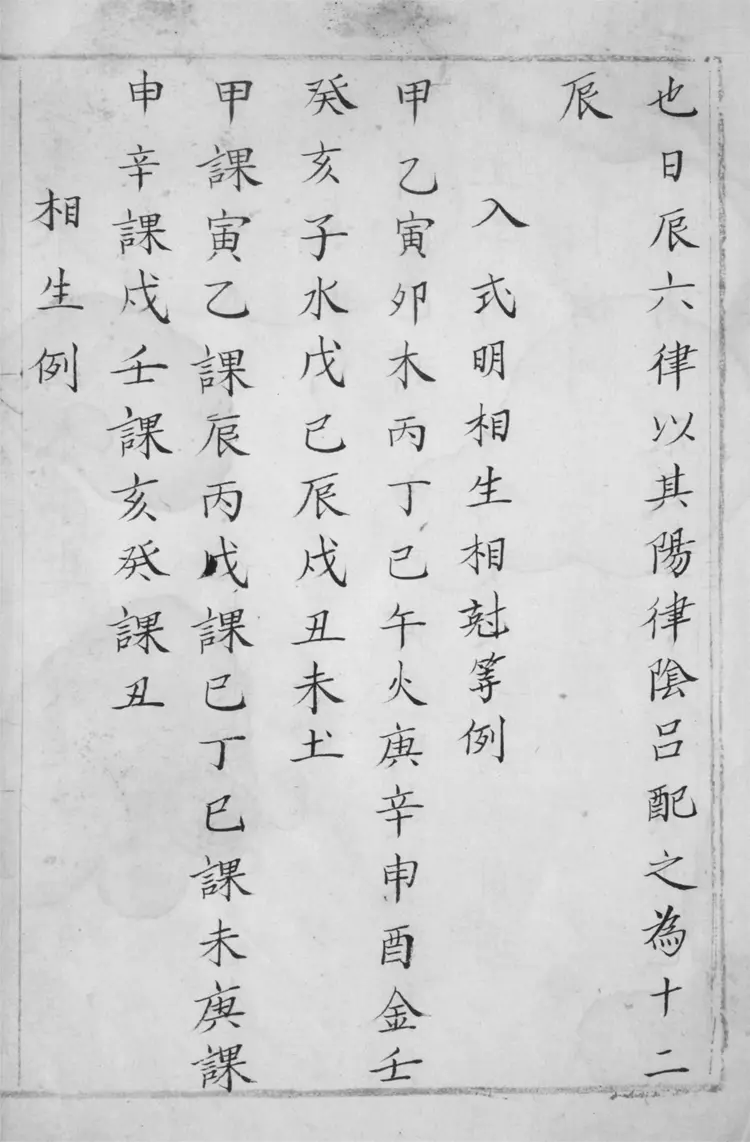 也日辰六律以其陽律陰呂配之為十二
辰
入式明相生相尅等例
甲乙寅卯木丙丁巳午火庚辛申酉金壬
癸亥子水戊己辰戌丑未土
甲課寅乙課辰丙戊課巳丁己課未庚課
申辛課戌壬課亥癸課丑
相生例